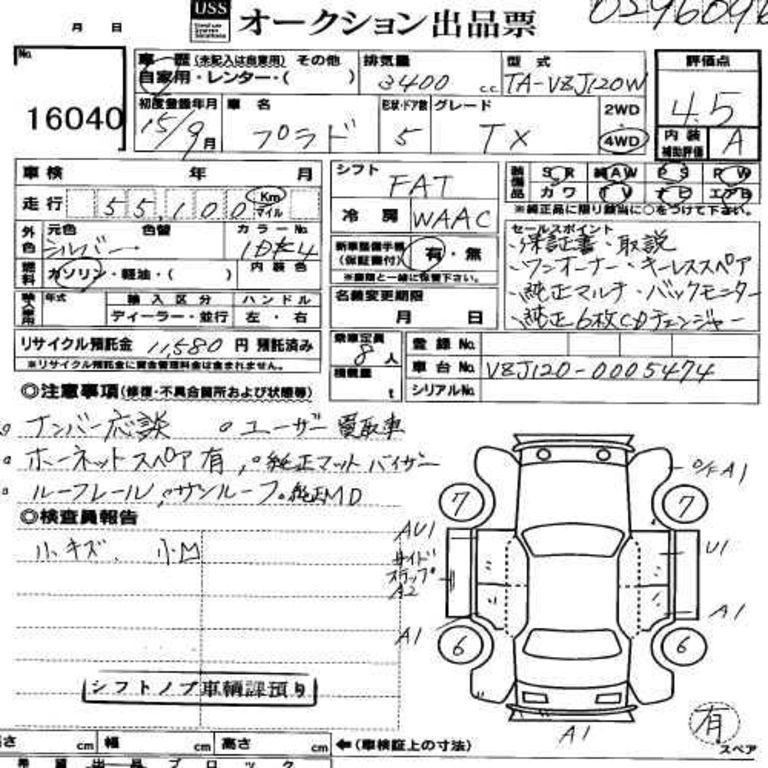 月 日 USS オークション出品票
No. 16040
車歴 (未記入は自家用) その他
自家用・レンター・( )
排気量 3400 c.c.
型式 TA-VZJ120W
評価点 4.5
内装補助評価 A
初度登録年月 15/9月
車名 プラド
形状・ドア数 5
グレード TX
2WD
4WD
車検 年 月
走行 55,100 Km マイル
外色 元色 色替 カラーNo.
シルバー
燃料 ガソリン・軽油・( ) 内装色
輸入車用 年式 輸入区分 ハンドル
ディーラー・並行 左・右
リサイクル預託金 11,580 円 預託済み
※リサイクル預託金に資金管理料金は含まれません。
シフト FAT
冷房 WAAC
新車整備手帳(保証書付) 有・無
※車両と一緒に保管下さい。
名義変更期限
月 日
乗車定員 8人
積載量 t
装備品 SR 純AW PS PW
カワ TV ナビ エアB
※純正品に限り該当に○をつけて下さい。
セールスポイント
・保証書・取説
・ワンオーナー・キーレススペア
・純正マルチ・バックモニター
・純正6枚CDチェンジャー
登録No.
車台No. VZJ120-0005474
シリアルNo.
◎注意事項(修復・不具合箇所および状態等)
○ナンバー応談 ○ユーザー買取車
○ホーネットスペア有,○純正マットバイザー
○ルーフレール,○サンルーフ○純正MD
◎検査員報告
小キズ、小凹
シフトノブ車輌課預り
7 7 6 6
A1
AU1
サイドステップA2
A1
U1
A1
A1
有 スペア
高さ cm 幅 cm 高さ cm ←(車検証上の寸法)
希望出品ブロック